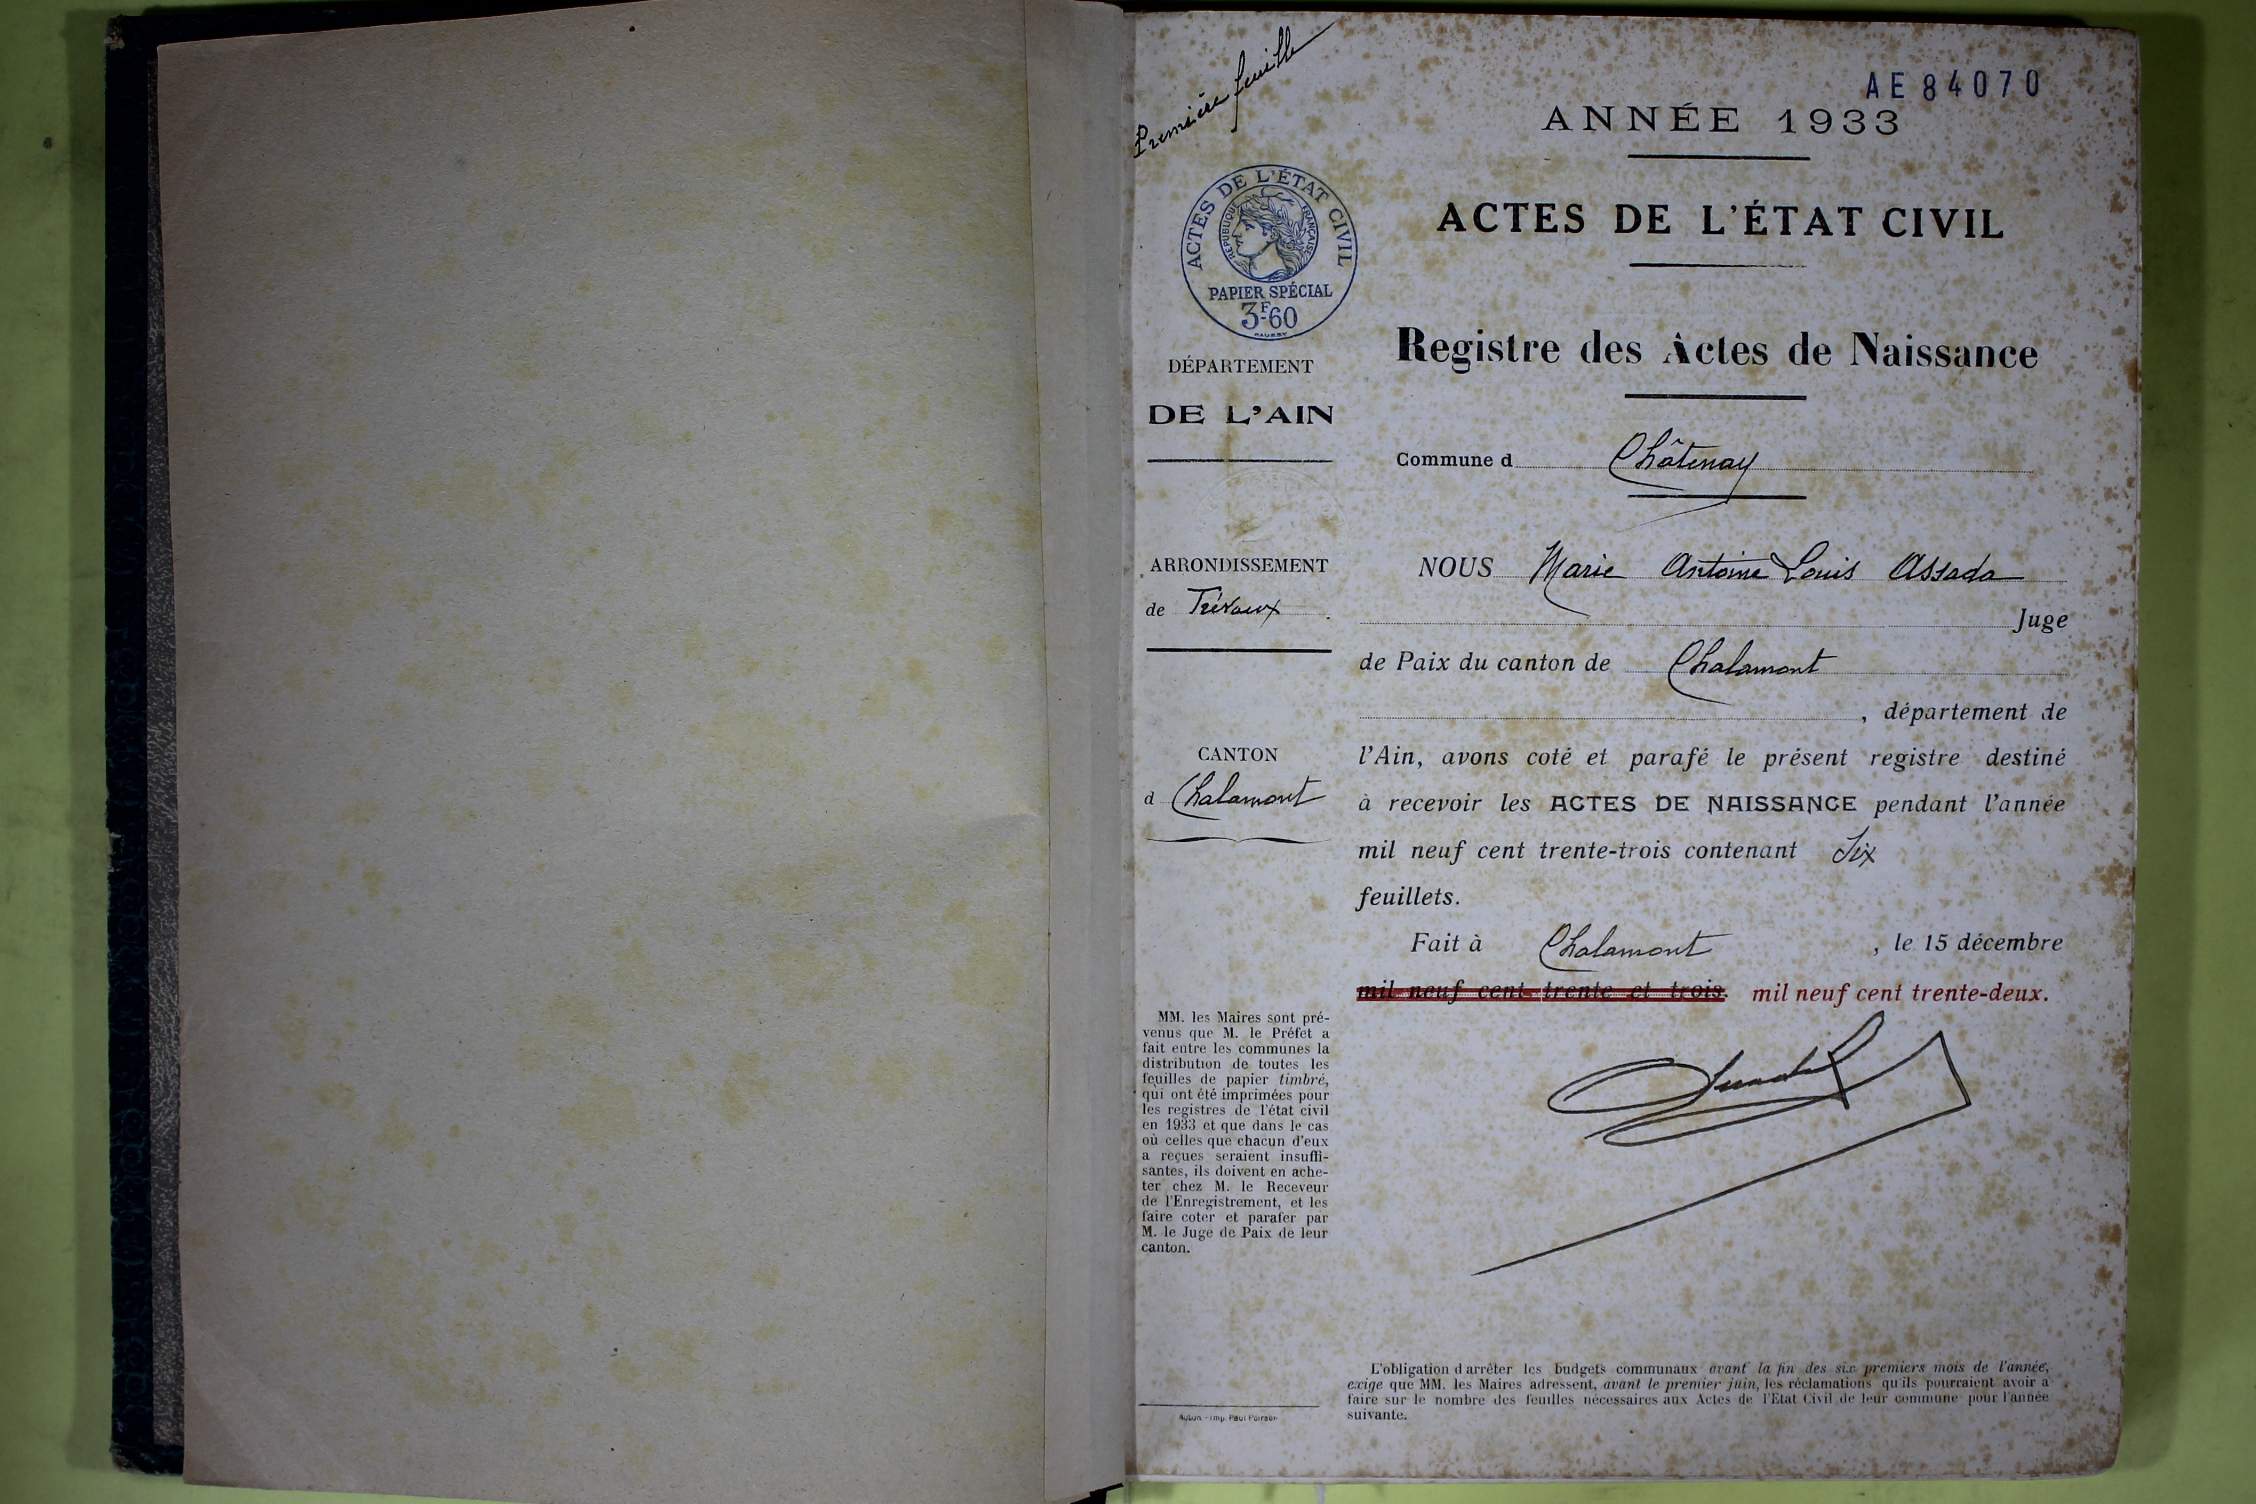 Première feuille
AE 84070
ANNÉE 1933
ACTES DE L'ÉTAT CIVIL
RÉPUBLIQUE FRANÇAISE
PAPIER SPÉCIAL
3F.60
ACTES DE L'ÉTAT CIVIL
Registre des Actes de Naissance
DÉPARTEMENT
DE L'AIN
Commune d Châtenay
ARRONDISSEMENT
de Trévoux
CANTON
d Chalamont
NOUS Marie Antoine Louis Assada
Juge
de Paix du canton de Chalamont
, département de
l'Ain, avons coté et parafé le présent registre destiné
à recevoir les ACTES DE NAISSANCE pendant l'année
mil neuf cent trente-trois contenant Six
feuillets.
Fait à Chalamont , le 15 décembre
mil neuf cent trente et trois. mil neuf cent trente-deux.
MM. les Maires sont pré-
venus que M. le Préfet a
fait entre les communes la
distribution de toutes les
feuilles de papier timbré,
qui ont été imprimées pour
les registres de l'état civil
en 1933 et que dans le cas
où celles que chacun d'eux
a reçues seraient insuffi-
santes, ils doivent en ache-
ter chez M. le Receveur
de l'Enregistrement, et les
faire coter et parafer par
M. le Juge de Paix de leur
canton.
L'obligation d'arrêter les budgets communaux avant la fin des six premiers mois de l'année,
exige que MM. les Maires adressent, avant le premier juin, les réclamations qu'ils pourraient avoir à
faire sur le nombre des feuilles nécessaires aux Actes de l'Etat Civil de leur commune pour l'année
suivante.
Imp. Paul